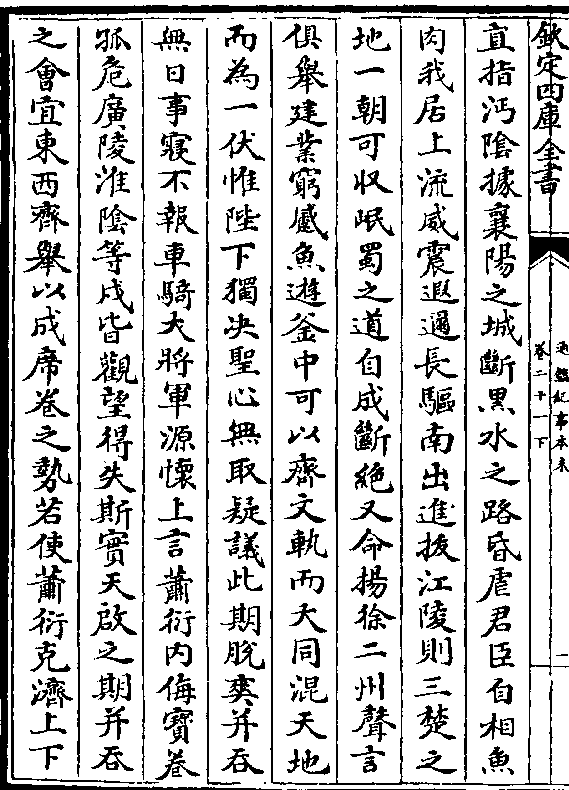 欽定四庫全書
通鑑紀事本末
卷二十一下
一
直指沔陰據襄陽之城斷黒水之路昏虐君臣自相魚
肉我居上流威震遐邇長驅南出進拔江陵則三楚之
地一朝可収岷蜀之道自成斷絶又命揚徐二州聲言
俱舉建業窮蹙魚遊釜中可以齊文軌而大同混天地
而為一伏惟陛下獨决聖心無取疑議此期脫爽并吞
無日事寢不報車騎大將軍源懷上言蕭衍内侮寶卷
孤危廣陵淮陰等戍皆觀望得失斯實天啟之期并吞
之會宜東西齊舉以成席卷之勢若使蕭衍克濟上下